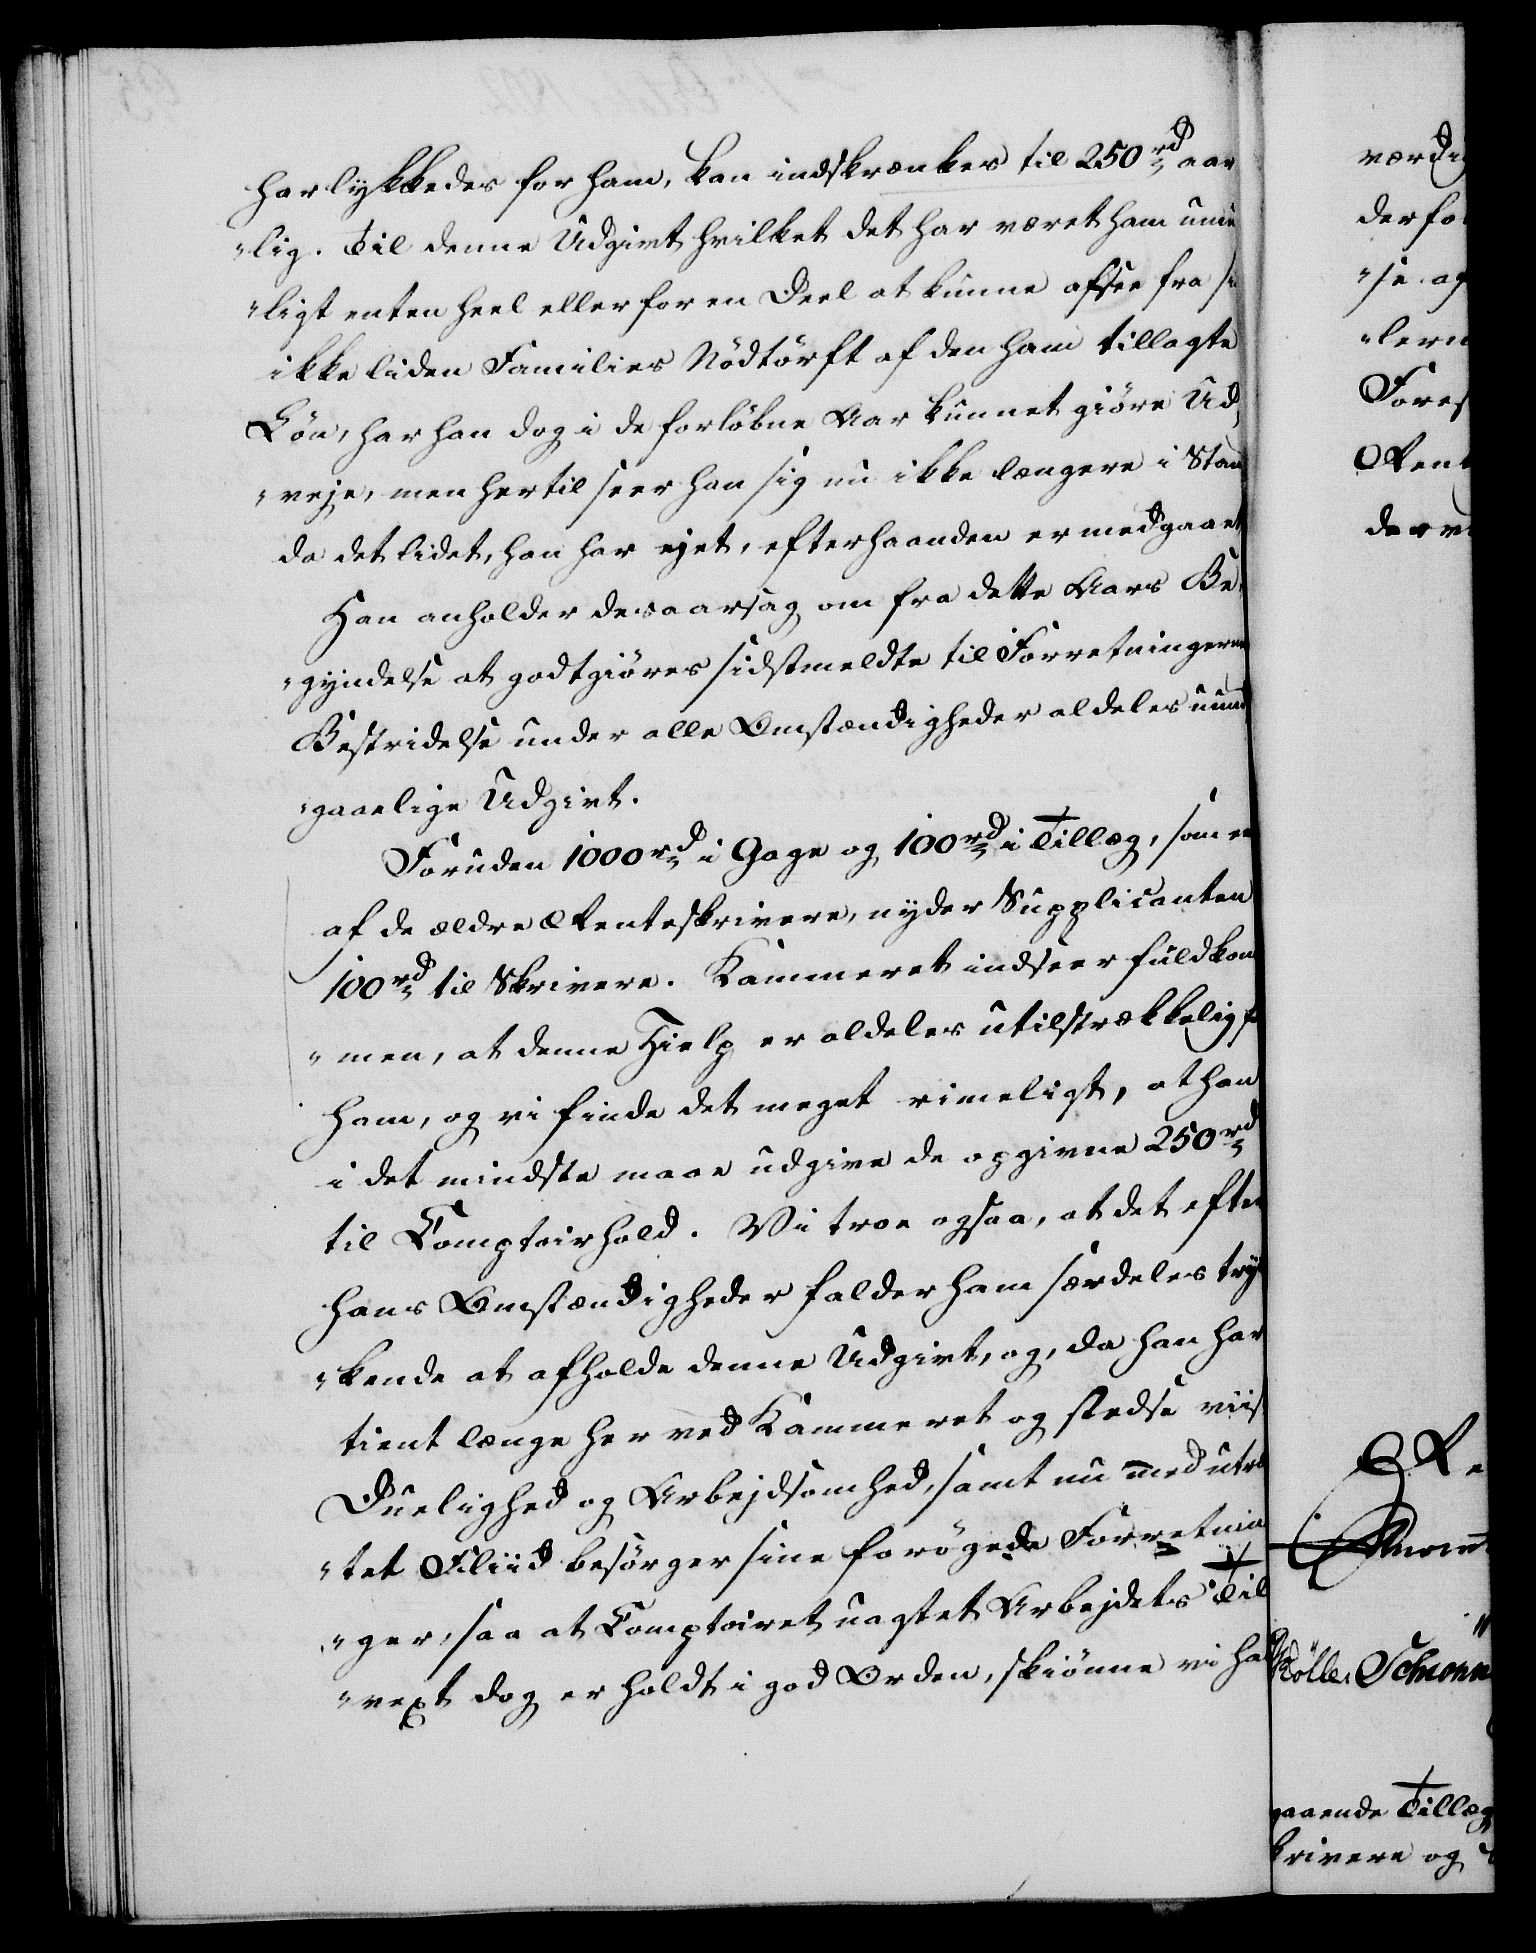 har lykkedes for ham, kan indskrænkes til 250 rd aar
"lig. Til denne Udgivt hvilket det har været ham umu
"ligt enten heel eller for en Deel at kunne afsee fra si
ikke liden Families Nödtörft af den ham tillagte
Lön, har han dog i de forløbne Aar kunnet giöre Ud,
"veje, men hertil seer han sig nu ikke længere i Stan
da det lidet, han har ejet, efterhaanden er medgaaet
Han anholder desaarsag om fra dette Aars Be,
"gyndelse at godtgiöres sidstmeldte til Forretningern
Bestridelse under alle Omstændigheder aldeles uund
"gaaelige Udgivt.
Foruden 1000 rd i Gage og 100 rd i Tillæg, som en
af de ældre Renteskrivere, nyder Supplicanten
100 rd til Skrivere. Kammeret indseer fuldkom
"men, at denne Hielp er aldeles utilstrækkelig fo
ham, og vi finde det meget rimeligt, at han
i det mindste maae udgive de opgivne 250 rd
til Comptoirhold. Vi troe ogsaa, at det efter
hans Omstændigheder falder ham særdeles tryk
"kende at afholde denne Udgivt, og, da han har
tient længe her ved Kammeret og stedse viis
Duelighed og Arbejdsomhed, samt nu med utræ
"tet Fliid besörger sine forögede Forretnin
"ger, saa at Comptoiret uagtet Arbejdets Til
"vext dog er holdt i god Orden, skiönne vi ha
værdig
derfo
"se og
"lern
Fores
Rent
derve
Re
gaaende Tillæg
krivere og